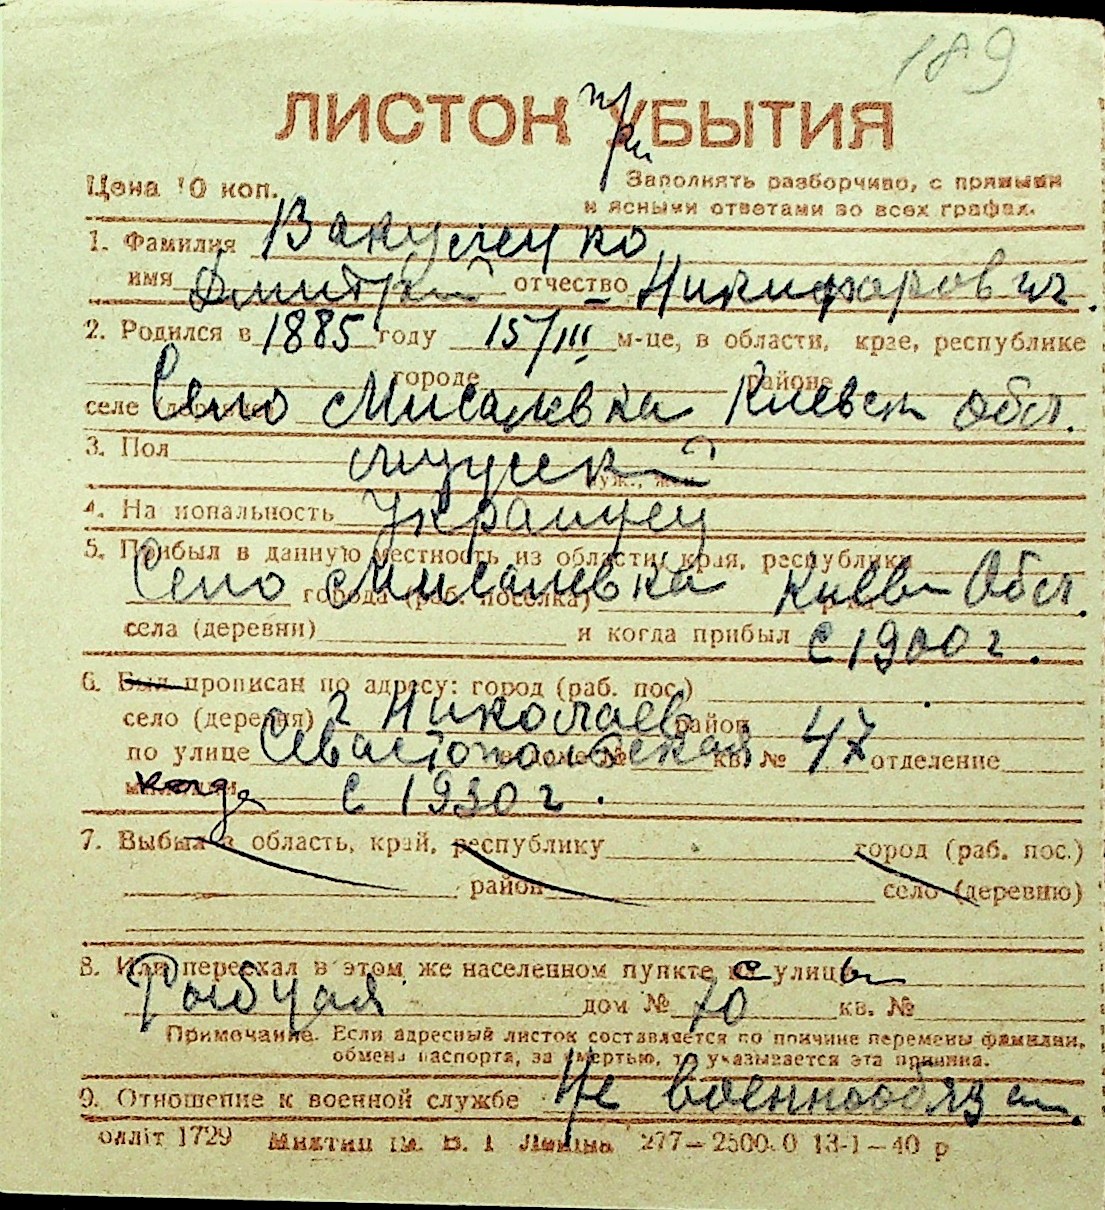 189
ЛИСТОК УБЫТИЯ
при
Цена 10 коп.
Заполнять разборчиво, с прямыми
и ясными ответами во всех графах.
1. Фамилия Вакуленко
имя Дмитрий отчество Никифорович.
2. Родился в 1885 году 15/III м-це, в области, крае, республике
городе районе
селе Село Мисалевка Киевск обл.
3. Пол мужской
муж., жен.
4. Национальность Украинец
5. Прибыл в данную местность из области, края, республики
Село Мисалевка Киев Обл.
города (раб. поселка)
села (деревни) и когда прибыл с 1900 г.
6. Был прописан по адресу: город (раб. пос.)
село (деревня) г Николаев район
по улице Севастопольская кв. № 47 отделение
когда с 1930 г.
7. Выбыл в область, край, республику город (раб. пос.)
район село (деревню)
8. Или переехал в этом же населенном пункте с улицы
Рыбная дом № 70 кв. №
Примечание. Если адресный листок составляется по причине перемены фамилии,
обмена паспорта, за смертью, то указывается эта причина.
9. Отношение к военной службе Не военнообязан.
олліт 1729 ім. В. І Леніна 277—2500.0 13-1—40 р